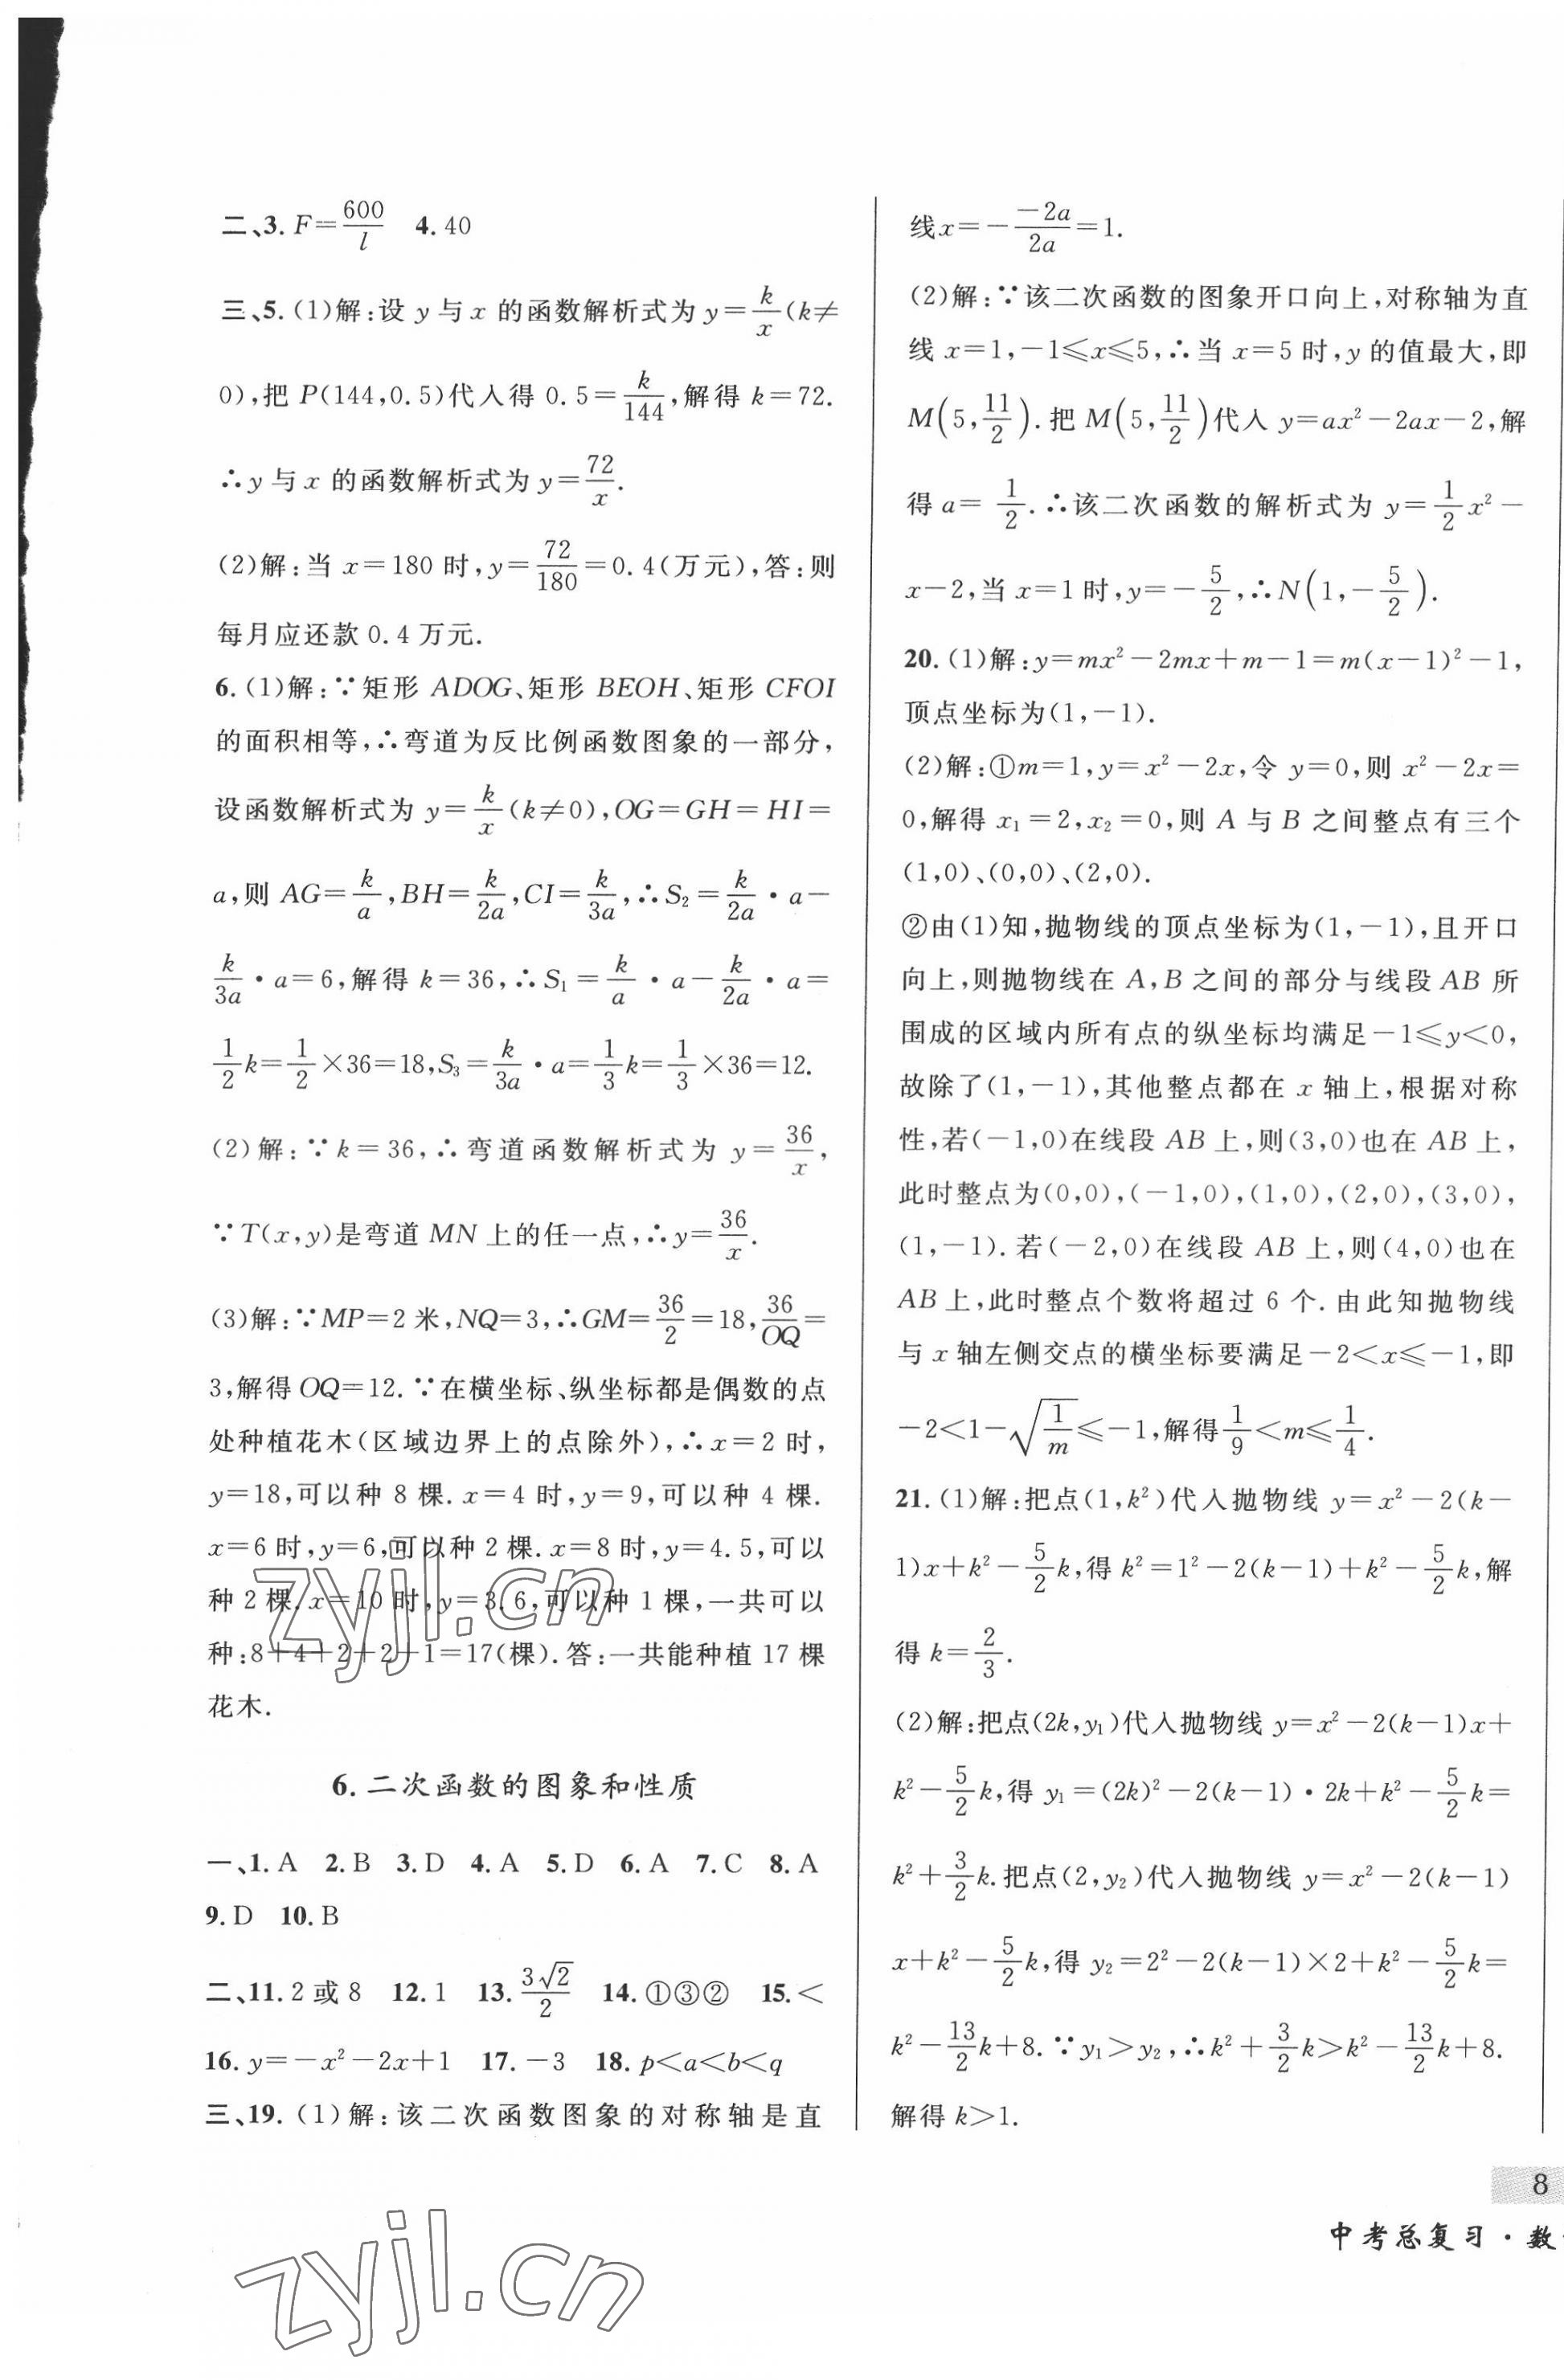 二、3. F=600/l  4. 40
三、5. (1)解:设 y 与 x 的函数解析式为 y=k/x(k≠
0),把 P(144,0.5)代入得 0.5=k/144,解得 k=72.
∴y 与 x 的函数解析式为 y=72/x.
(2)解:当 x=180 时,y=72/180=0.4(万元),答:则
每月应还款 0.4 万元.
6. (1)解:∵矩形 ADOG、矩形 BEOH、矩形 CFOI
的面积相等,∴弯道为反比例函数图象的一部分,
设函数解析式为 y=k/x(k≠0),OG=GH=HI=
a,则 AG=k/a,BH=k/2a,CI=k/3a,∴S₂=k/2a·a-
k/3a·a=6,解得 k=36,∴S₁=k/a·a-k/2a·a=
1/2k=1/2×36=18,S₃=k/3a·a=1/3k=1/3×36=12.
(2)解:∵k=36,∴弯道函数解析式为 y=36/x,
∵T(x,y)是弯道 MN 上的任一点,∴y=36/x.
(3)解:∵MP=2 米,NQ=3,∴GM=36/2=18,36/OQ=
3,解得 OQ=12.∵在横坐标、纵坐标都是偶数的点
处种植花木(区域边界上的点除外),∴x=2 时,
y=18,可以种 8 棵.x=4 时,y=9,可以种 4 棵.
x=6 时,y=6,可以种 2 棵.x=8 时,y=4.5,可以
种 2 棵.x=10 时,y=3.6,可以种 1 棵,一共可以
种:8+4+2+2+1=17(棵).答:一共能种植 17 棵
花木.
6.二次函数的图象和性质
一、1. A  2. B  3. D  4. A  5. D  6. A  7. C  8. A
9. D  10. B
二、11. 2 或 8  12. 1  13. 3√2/2  14. ①③②  15. <
16. y=-x²-2x+1  17. -3  18. p<a<b<q
三、19. (1)解:该二次函数图象的对称轴是直
线 x=-(-2a)/2a=1.
(2)解:∵该二次函数的图象开口向上,对称轴为直
线 x=1,-1≤x≤5,∴当 x=5 时,y 的值最大,即
M(5,11/2).把 M(5,11/2)代入 y=ax²-2ax-2,解
得 a=1/2.∴该二次函数的解析式为 y=1/2x²-
x-2,当 x=1 时,y=-5/2,∴N(1,-5/2).
20. (1)解:y=mx²-2mx+m-1=m(x-1)²-1,
顶点坐标为(1,-1).
(2)解:①m=1,y=x²-2x,令 y=0,则 x²-2x=
0,解得 x₁=2,x₂=0,则 A 与 B 之间整点有三个
(1,0)、(0,0)、(2,0).
②由(1)知,抛物线的顶点坐标为(1,-1),且开口
向上,则抛物线在 A,B 之间的部分与线段 AB 所
围成的区域内所有点的纵坐标均满足-1≤y<0,
故除了(1,-1),其他整点都在 x 轴上,根据对称
性,若(-1,0)在线段 AB 上,则(3,0)也在 AB 上,
此时整点为(0,0),(-1,0),(1,0),(2,0),(3,0),
(1,-1).若(-2,0)在线段 AB 上,则(4,0)也在
AB 上,此时整点个数将超过 6 个.由此知抛物线
与 x 轴左侧交点的横坐标要满足-2<x≤-1,即
-2<1-√(1/m)≤-1,解得1/9<m≤1/4.
21. (1)解:把点(1,k²)代入抛物线 y=x²-2(k-
1)x+k²-5/2k,得 k²=1²-2(k-1)+k²-5/2k,解
得 k=2/3.
(2)解:把点(2k,y₁)代入抛物线 y=x²-2(k-1)x+
k²-5/2k,得 y₁=(2k)²-2(k-1)·2k+k²-5/2k=
k²+3/2k.把点(2,y₂)代入抛物线 y=x²-2(k-1)
x+k²-5/2k,得 y₂=2²-2(k-1)×2+k²-5/2k=
k²-13/2k+8.∵y₁>y₂,∴k²+3/2k>k²-13/2k+8.
解得 k>1.
8
中考总复习·数
zyjl.cn
zyjl.cn